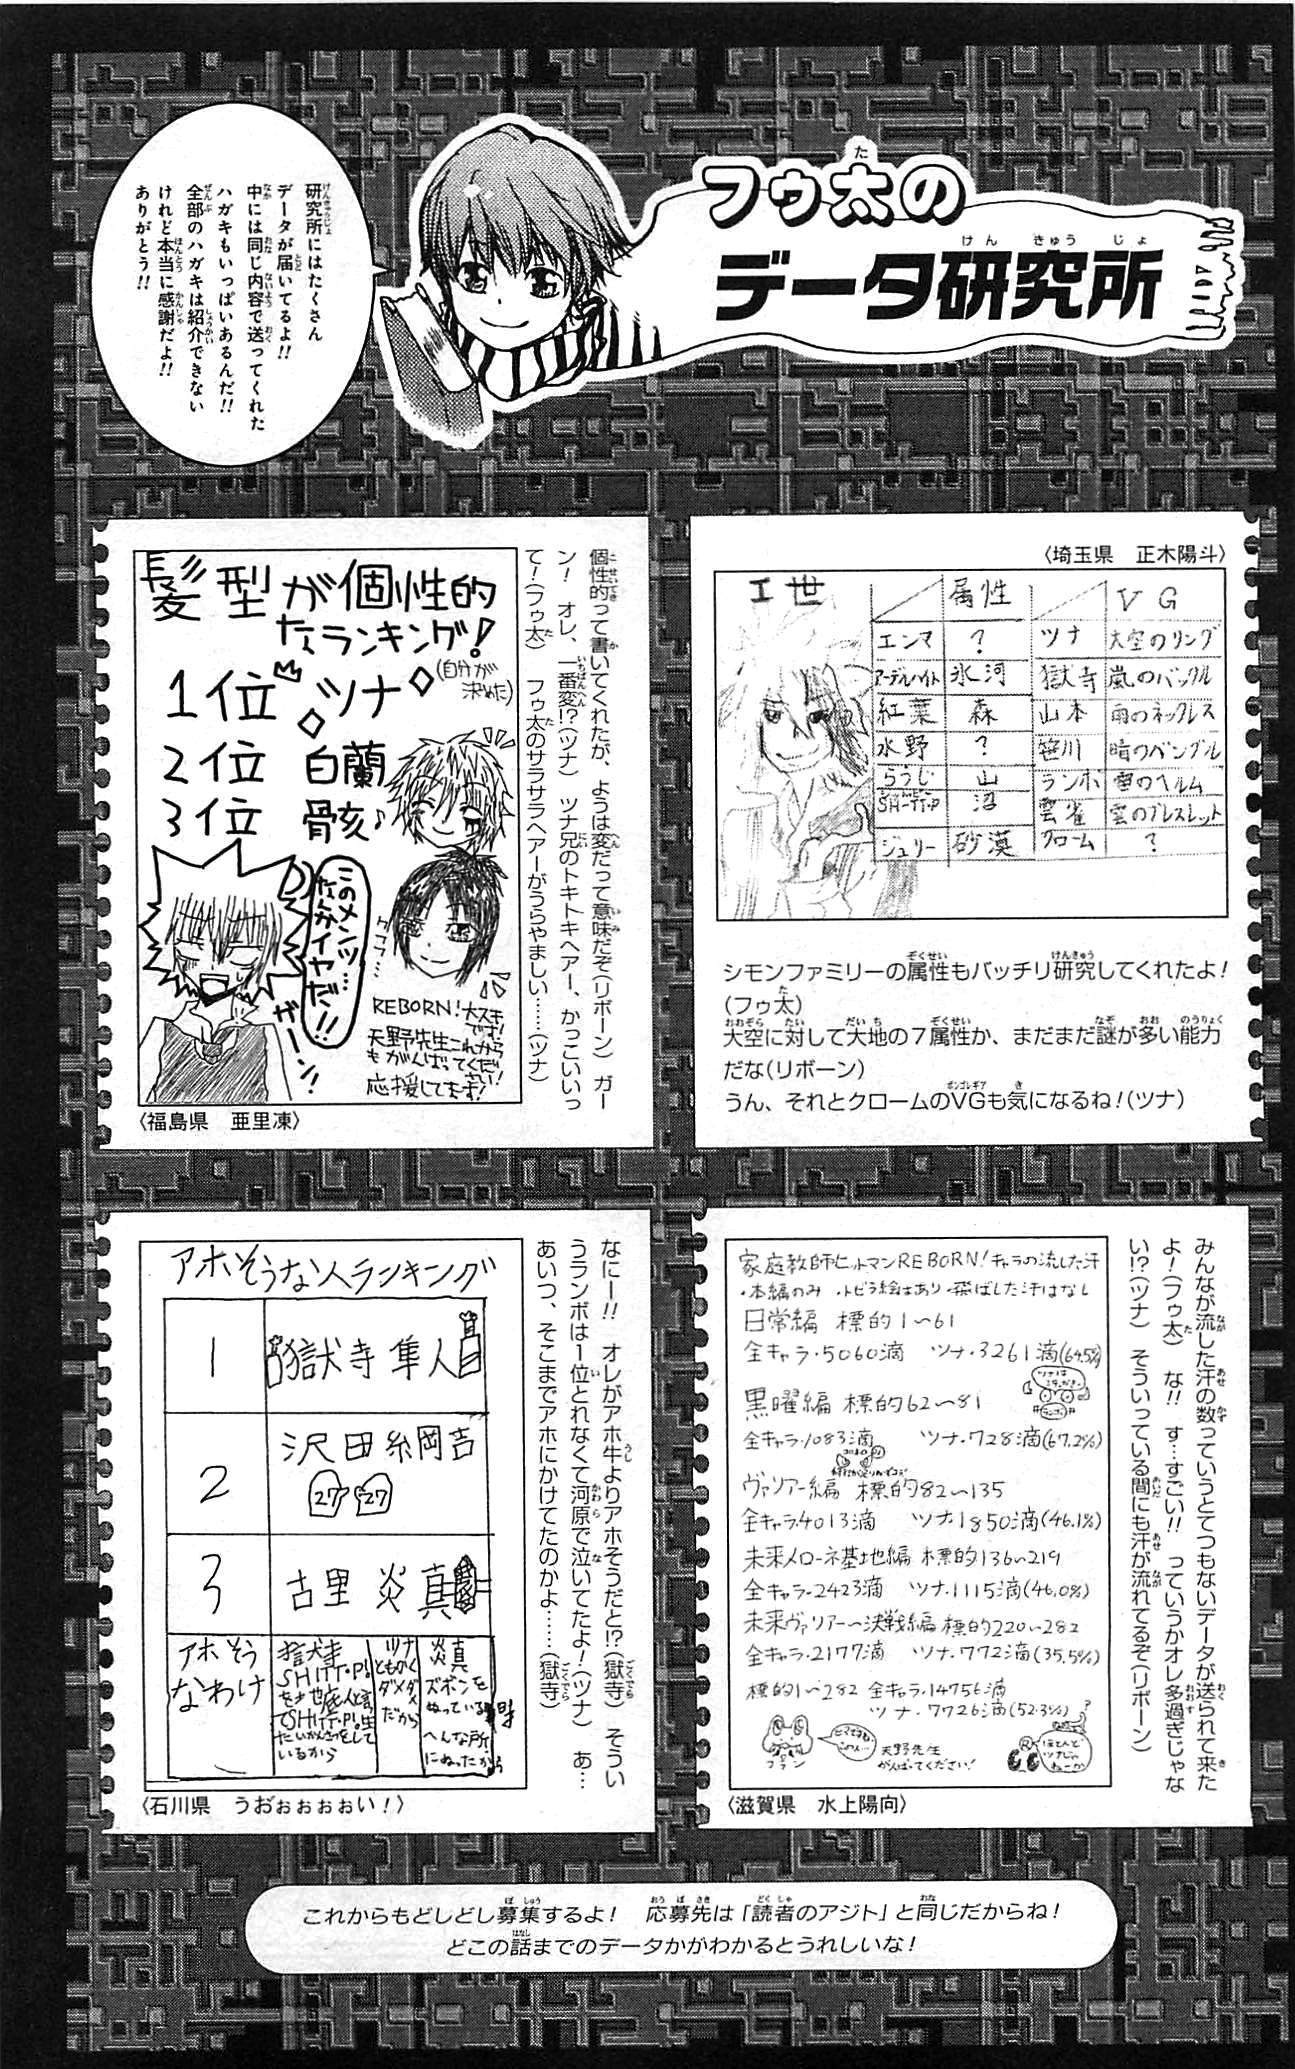 フゥ太の
データ研究所
研究所にはたくさん
データが届いてるよ!!
中には同じ内容で送ってくれた
ハガキもいっぱいあるんだ!!
全部のハガキは紹介できない
けれど本当に感謝だよ!!
ありがとう!!
〈埼玉県　正木陽斗〉
I世
属性
VG
エンマ ? ツナ 大空のリング
アーデルハイト 氷河 獄寺 嵐のバックル
紅葉 森 山本 雨のネックレス
水野 ? 笹川 晴のバングル
らうじ 山 ランボ 雷のヘルム
SHITT・P 沼 雲雀 雲のブレスレット
ジュリー 砂漠 クローム ?
シモンファミリーの属性もバッチリ研究してくれたよ!
(フゥ太)
大空に対して大地の7属性か、まだまだ謎が多い能力
だな(リボーン)
うん、それとクロームのVGも気になるね!(ツナ)
個性的って書いてくれたが、ようは変だって意味だぞ(リボーン)　ガー
ン!　オレ、一番変!?(ツナ)　ツナ兄のトキトキヘアー、かっこいいっ
て!(フゥ太)　フゥ太のサラサラヘアーがうらやましい……(ツナ)
髪型が個性的
なランキング!
(自分が
決めた)
1位 ツナ
2位 白蘭
3位 骸♪
このメンツ…
なんかイヤだ!!
ガーン!
REBORN!大スキ
です!
天野先生これから
もがんばってくだ
さい!
応援してます!
〈福島県　亜里凍〉
みんなが流した汗の数っていうとてつもないデータが送られて来た
よ!(フゥ太)　な!!　す…すごい!!　っていうかオレ多過ぎじゃな
い!?(ツナ)　そういっている間にも汗が流れてるぞ(リボーン)
家庭教師ヒットマンREBORN!キャラの流した汗
・本編のみ ・トビラ絵はあり ・飛ばした汗はなし
日常編 標的1〜61
全キャラ・5060滴 ツナ・3261滴(64.5%)
黒曜編 標的62〜81
全キャラ・1083滴 ツナ・728滴(67.2%)
ヴァリアー編 標的82〜135
全キャラ・4013滴 ツナ・1850滴(46.1%)
未来メローネ基地編 標的136〜219
全キャラ・2423滴 ツナ・1115滴(46.0%)
未来ヴァリアー〜決戦編 標的220〜282
全キャラ・2177滴 ツナ・772滴(35.5%)
標的1〜282 全キャラ・14756滴
ツナ・7726滴(52.3%)
フラン
天野先生
がんばってください!
ほとんど
ツナじゃ
ねーか
〈滋賀県　水上陽向〉
なにー!!　オレがアホ牛よりアホそうだと!?(獄寺)　そうい
うランボは1位とれなくて河原で泣いてたよ!(ツナ)　あ…
あいつ、そこまでアホにかけてたのかよ……(獄寺)
アホそうな人ランキング
1 獄寺隼人
2 沢田綱吉
27 27
3 古里炎真
アホそう
なわけ
獄寺
SHITT・P!
を地底人と言っ
てSHITT・P!生
たいかんさつをして
いるから
ツナ
ともかく
ダメダメ
だから
炎真
ズボンを
ぬっている時
へんな所
にぬったから
〈石川県　うおぉぉぉぉい!〉
これからもどしどし募集するよ!　応募先は「読者のアジト」と同じだからね!
どこの話までのデータかがわかるとうれしいな!